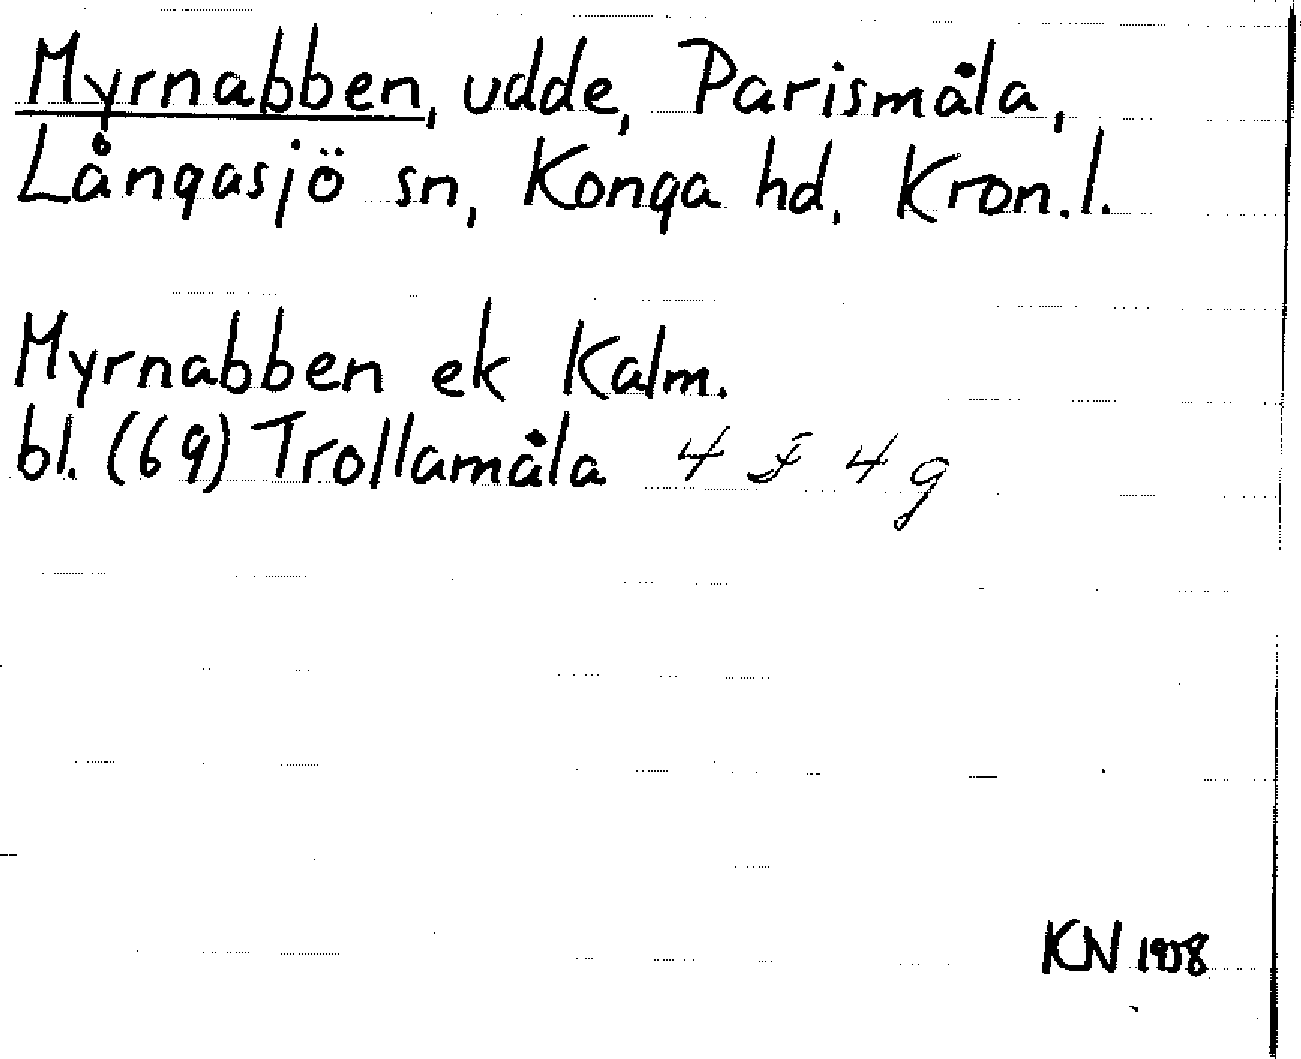 Myrnabben, udde, Parismåla,
Långasjö sn, Konga hd. Kron.l.
Myrnabben ek Kalm.
bl. (69) Trollamåla 4 F 4 g
KN 1958